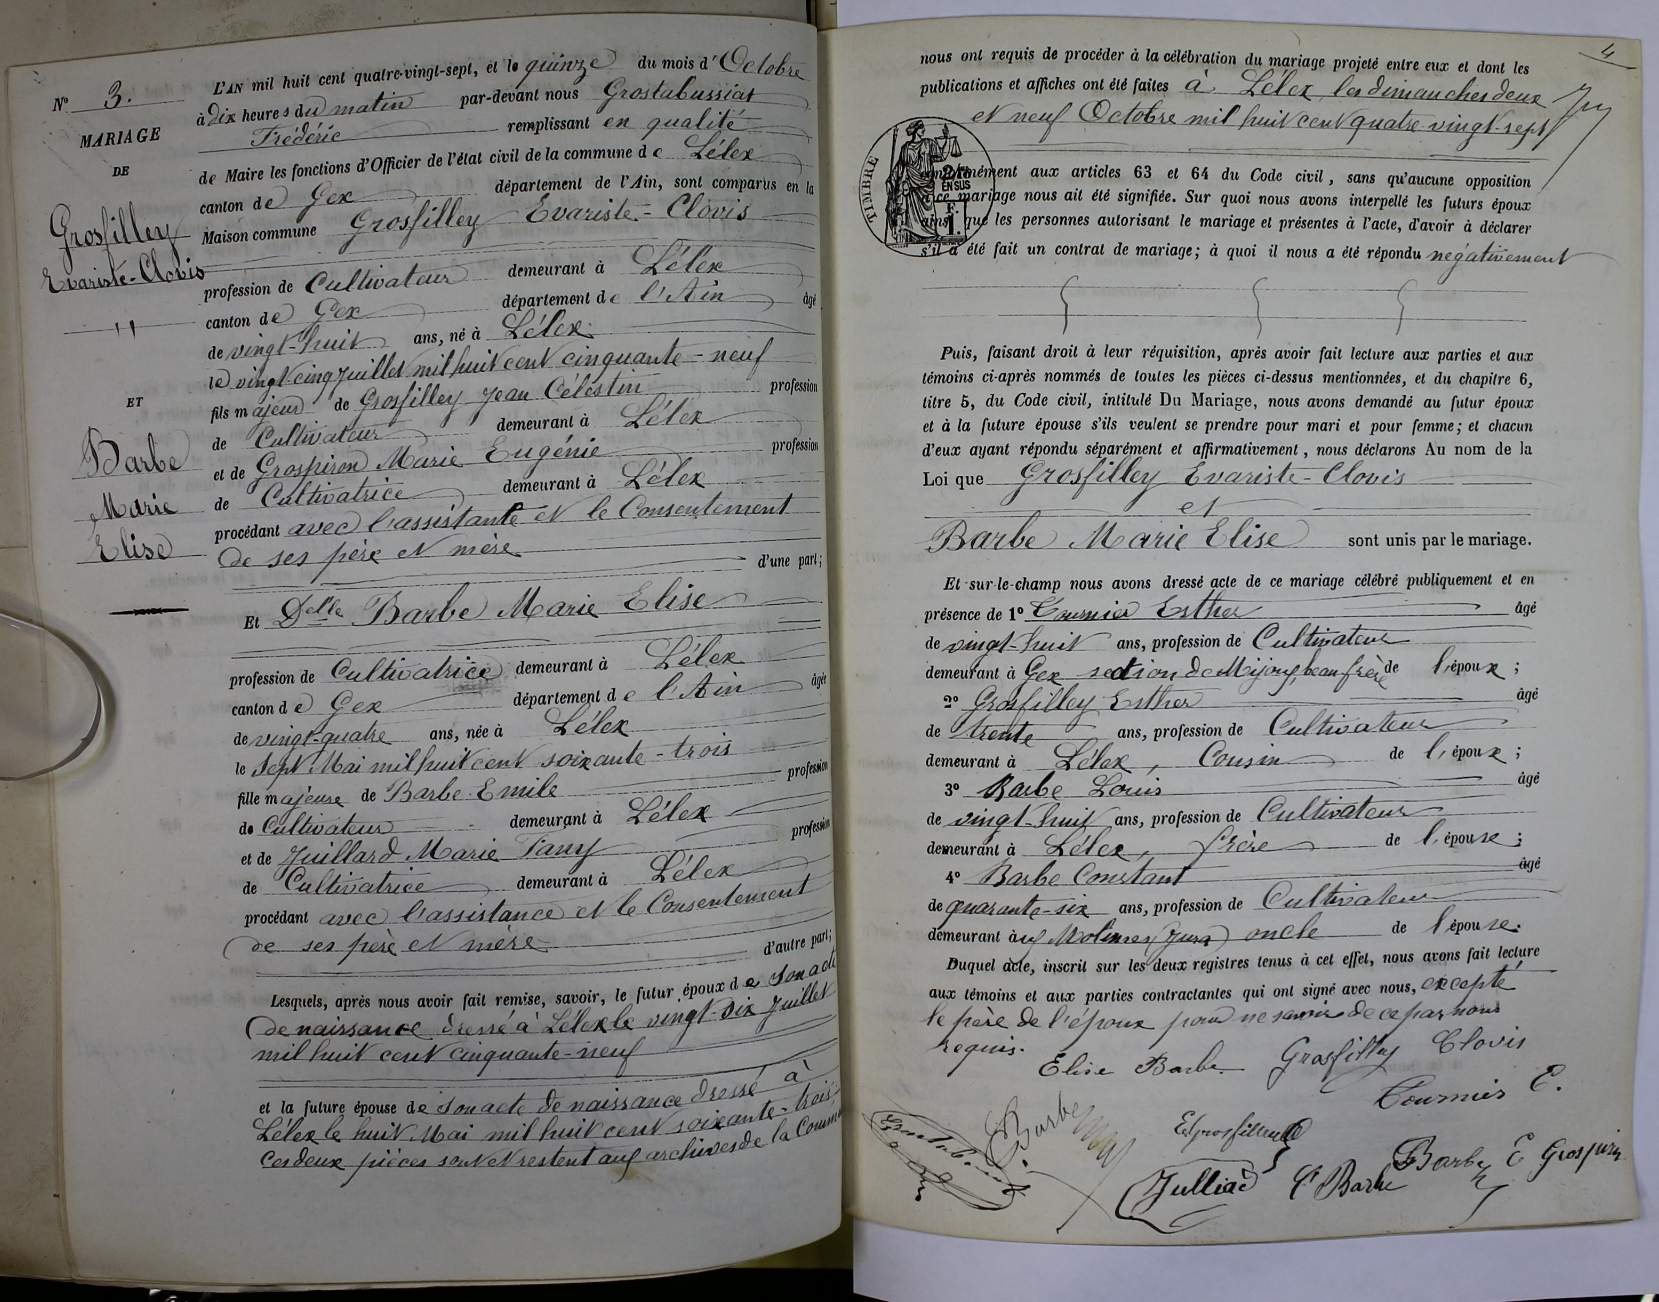 N° 3.
MARIAGE
DE
Grosfilley
Evariste-Clovis
ET
Barbe
Marie
Elise
L'AN mil huit cent quatre-vingt-sept, et le quinze du mois d'Octobre
à dix heures du matin par-devant nous Grostabussiat
Frédéric remplissant en qualité
de Maire les fonctions d'Officier de l'état civil de la commune de Lélex
canton de Gex département de l'Ain, sont comparus en la
Maison commune Grosfilley Evariste-Clovis
profession de Cultivateur demeurant à Lélex
canton de Gex département de l'Ain âgé
de vingt-huit ans, né à Lélex
le vingt-cinq Juillet mil huit cent cinquante-neuf
fils majeur de Grosfilley Jean Célestin profession
de Cultivateur demeurant à Lélex
et de Grospiron Marie Eugénie profession
de Cultivatrice demeurant à Lélex
procédant avec l'assistante et le Consentement
de ses père et mère d'une part;
Et Delle Barbe Marie Elise
profession de Cultivatrice demeurant à Lélex
canton de Gex département de l'Ain âgée
de vingt-quatre ans, née à Lélex
le sept Mai mil huit cent soixante-trois
fille majeure de Barbe Emile profession
de Cultivateur demeurant à Lélex
et de Juillard Marie Fany profession
de Cultivatrice demeurant à Lélex
procédant avec l'assistance et le Consentement
de ses père et mère d'autre part;
Lesquels, après nous avoir fait remise, savoir, le futur époux de son acte
de naissance dressé à Lélex le vingt-six Juillet
mil huit cent cinquante-neuf
et la future épouse de son acte de naissance dressé à
Lélex le huit Mai mil huit cent soixante-trois
Ces deux pièces sont et restent aux archives de la Commune
4
nous ont requis de procéder à la célébration du mariage projeté entre eux et dont les
publications et affiches ont été faites à Lélex les dimanches deux
et neuf Octobre mil huit cent quatre-vingt-sept
TIMBRE
2/10
EN SUS
F.
1.
conformément aux articles 63 et 64 du Code civil, sans qu'aucune opposition
à ce mariage nous ait été signifiée. Sur quoi nous avons interpellé les futurs époux
ainsi que les personnes autorisant le mariage et présentes à l'acte, d'avoir à déclarer
s'il a été fait un contrat de mariage; à quoi il nous a été répondu négativement
Puis, faisant droit à leur réquisition, après avoir fait lecture aux parties et aux
témoins ci-après nommés de toutes les pièces ci-dessus mentionnées, et du chapitre 6,
titre 5, du Code civil, intitulé Du Mariage, nous avons demandé au futur époux
et à la future épouse s'ils veulent se prendre pour mari et pour femme; et chacun
d'eux ayant répondu séparément et affirmativement, nous déclarons Au nom de la
Loi que Grosfilley Evariste-Clovis
et
Barbe Marie Elise sont unis par le mariage.
Et sur-le-champ nous avons dressé acte de ce mariage célébré publiquement et en
présence de 1° Tournier Esther âgé
de vingt-huit ans, profession de Cultivateur
demeurant à Gex section de Mijoux, beau frère de l'époux;
2° Grosfilley Esther âgé
de trente ans, profession de Cultivateur
demeurant à Lélex, Cousin de l'époux;
3° Barbe Louis âgé
de vingt-huit ans, profession de Cultivateur
demeurant à Lélex, frère de l'épouse;
4° Barbe Constant âgé
de quarante-six ans, profession de Cultivateur
demeurant aux Molunes (Jura) oncle de l'épouse.
Duquel acte, inscrit sur les deux registres tenus à cet effet, nous avons fait lecture
aux témoins et aux parties contractantes qui ont signé avec nous, excepté
le père de l'époux pour ne savoir de ce par nous
requis.
Elise Barbe Grosfilley Clovis
Tournier E.
Barbe
Juilliard C Barbe Barbe E Grospiron